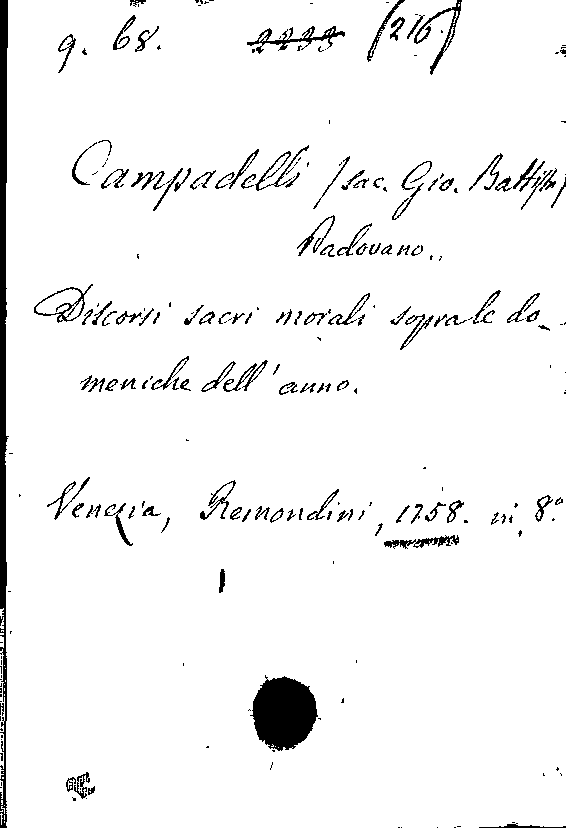 9. 68. 2233 (216)
Campadelli (sac. Gio. Battista)
Padovano.
Discorsi sacri morali sopra le do-
meniche dell'anno.
Venezia, Remondini, 1758. in 8.°